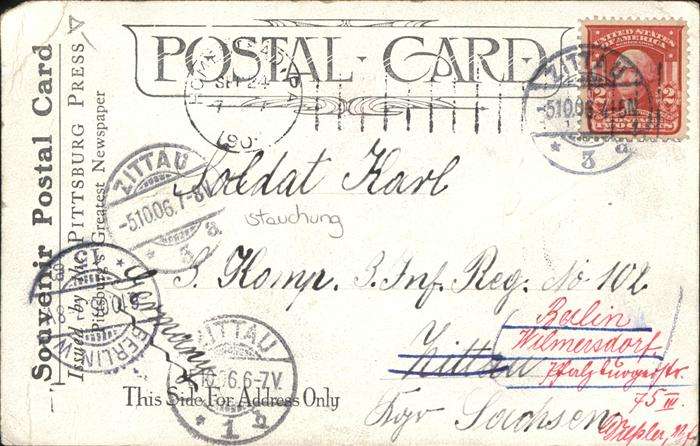 POSTAL CARD
Souvenir Postal Card
Issued by the PITTSBURG PRESS
Pittsburg's Greatest Newspaper
UNITED STATES
OF AMERICA
HOMESTEAD PA
SEP 24
190
ZITTAU
-5.10.06.7-8V.
* 3 a
ZITTAU
-5.10.06.7-8V.
* 3 a
Soldat Karl
stauchung
3. Komp. 3. Inf. Reg. No 102
Zittau
Germany
Berlin
Wilmersdorf.
75 III.
BERLIN.W
15
ZITTAU
10.06.6-7V.
* 1 b
This Side For Address Only
Kgr Sachsen